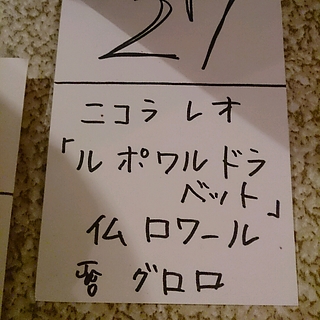 27
ニコラ レオ
「ルポワルドラ
ベット」
仏 ロワール
グロロ